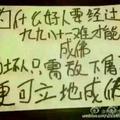 为什么好人要经过
九九八十一难才能
成佛
坏人只需放下屠刀
便可立地成佛